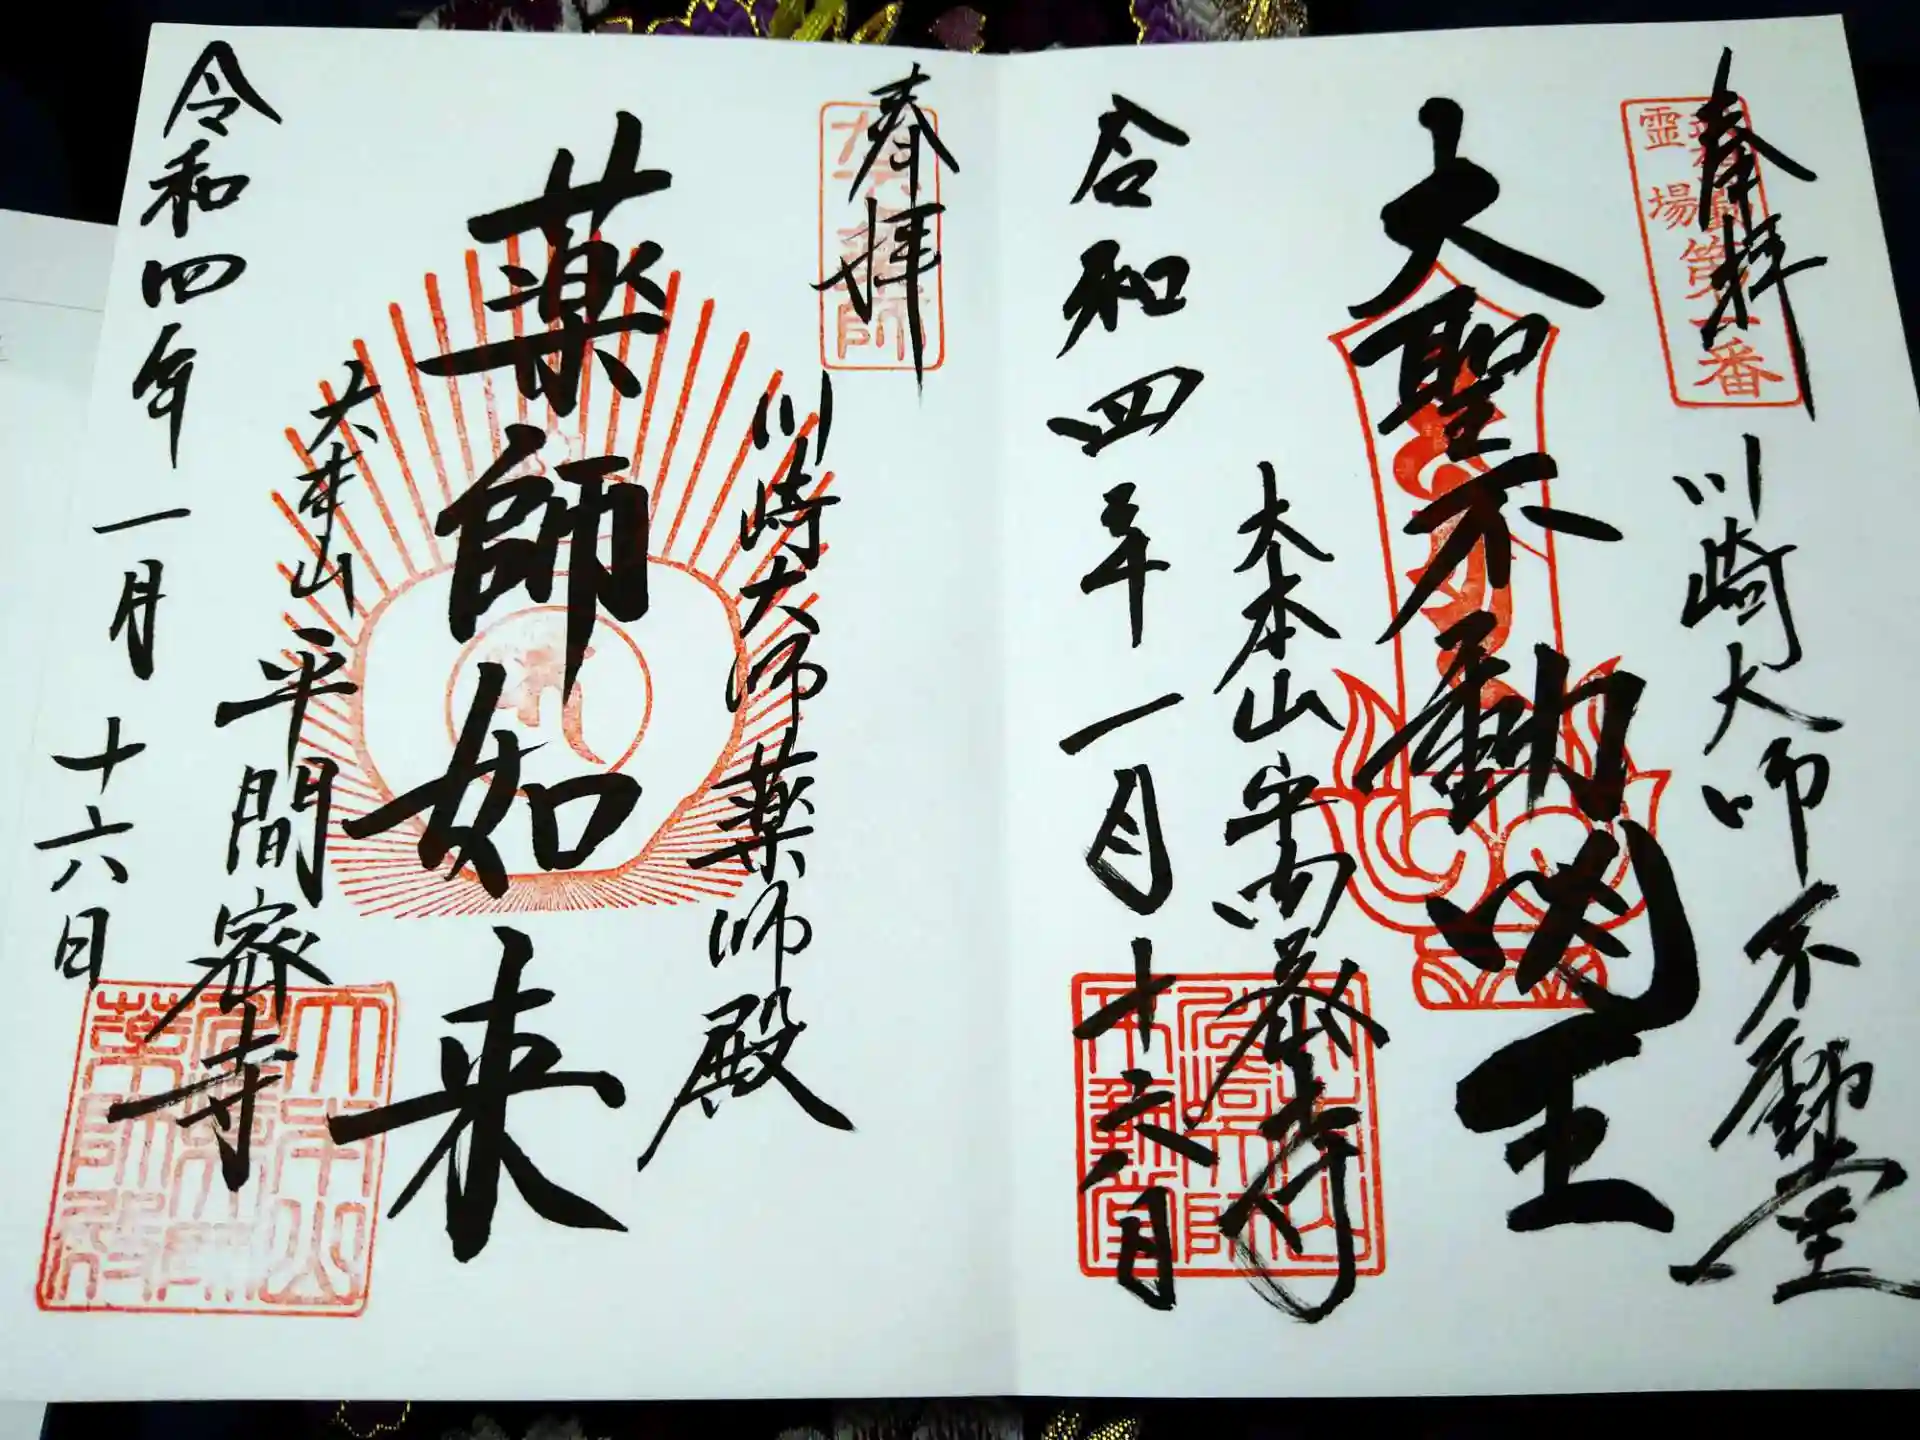 奉拝
霊場
第一番
川崎大師不動堂
大聖不動明王
大本山平間寺
令和四年一月十六日
奉拝
川崎大師薬師殿
薬師如来
大本山
平間密寺
令和四年一月十六日